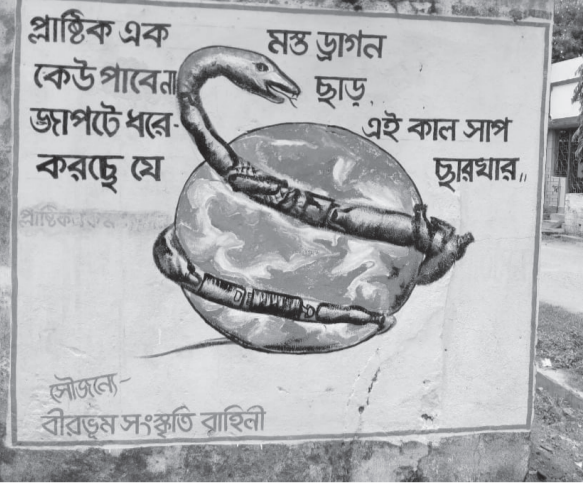 প্লাষ্টিক এক মস্ত ড্রাগন
কেউ পাবেনা ছাড়
জাপটে ধরে এই কাল সাপ
করছে যে ছারখার
প্লাষ্টিক
সৌজন্যে-
বীরভূম সংস্কৃতি বাহিনী